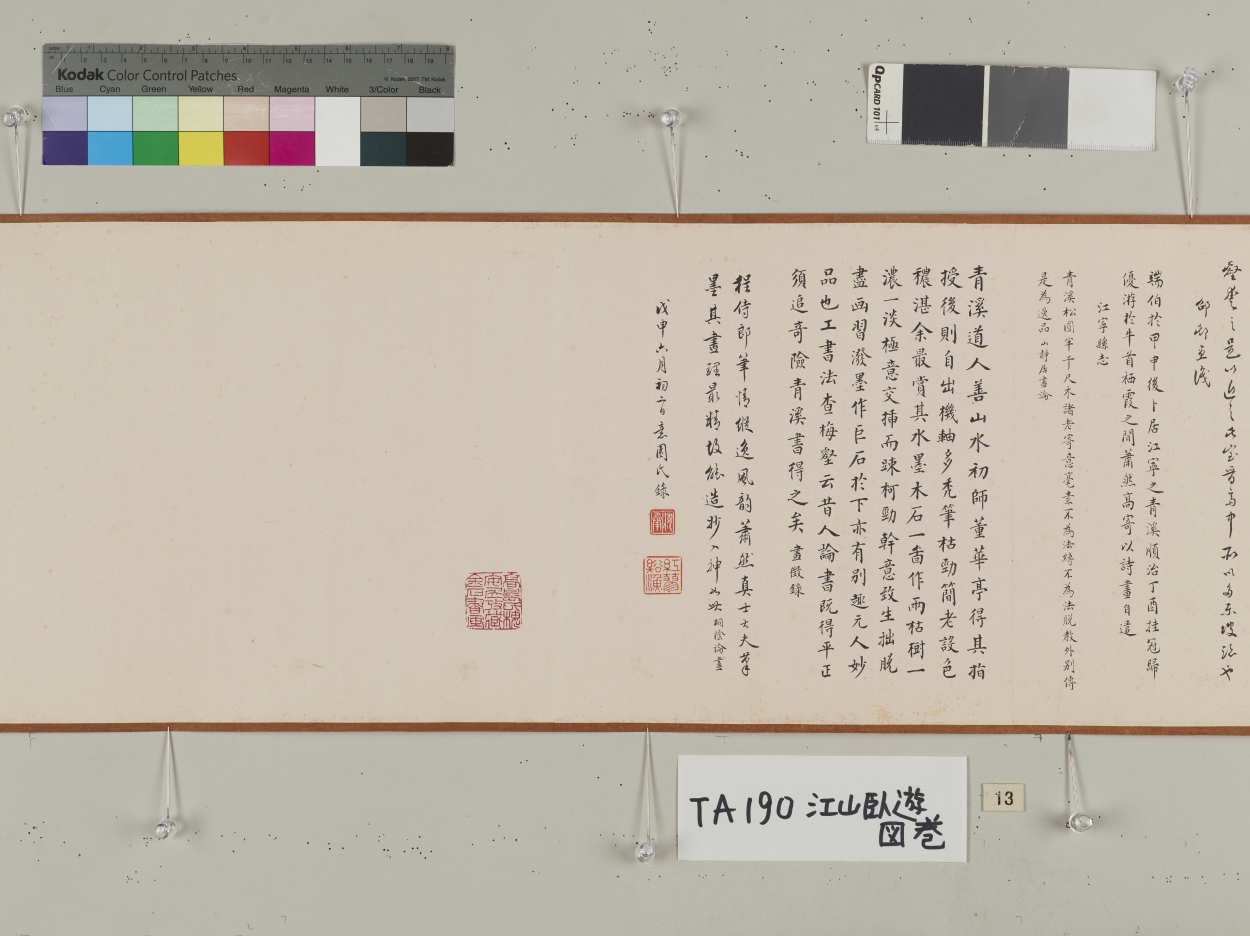 Kodak Color Control Patches
© Kodak, 2007 TM: Kodak
Blue Cyan Green Yellow Red Magenta White 3/Color Black
QpCARD 101 v4
是以近
端伯於甲申後卜居江寧之青溪順治丁酉挂冠歸
優游於牛首栖霞之間蕭然高寄以詩畫自遣
江寧縣志
青溪松圓半千尺木諸老寄意毫素不為法縛不為法脱教外別傳
是為逸品 山靜居畫論
青溪道人善山水初師董華亭得其指
授後則自出機軸多禿筆枯勁簡老設色
穠湛余最賞其水墨木石一啚作兩枯樹一
濃一淡極意交揷而踈柯勁幹意致生拙脱
盡画習潑墨作巨石於下亦有别趣元人妙
品也工書法查梅壑云昔人論書既得平正
須追奇險青溪書得之矣 畫徵錄
程侍郎筆情縱逸風韵蕭然真士大夫筆
墨其畫理最精故能造抄入神如此 桐陰論畫
戊申六月初二日意園氏錄
TA190 江山臥遊
図巻
13